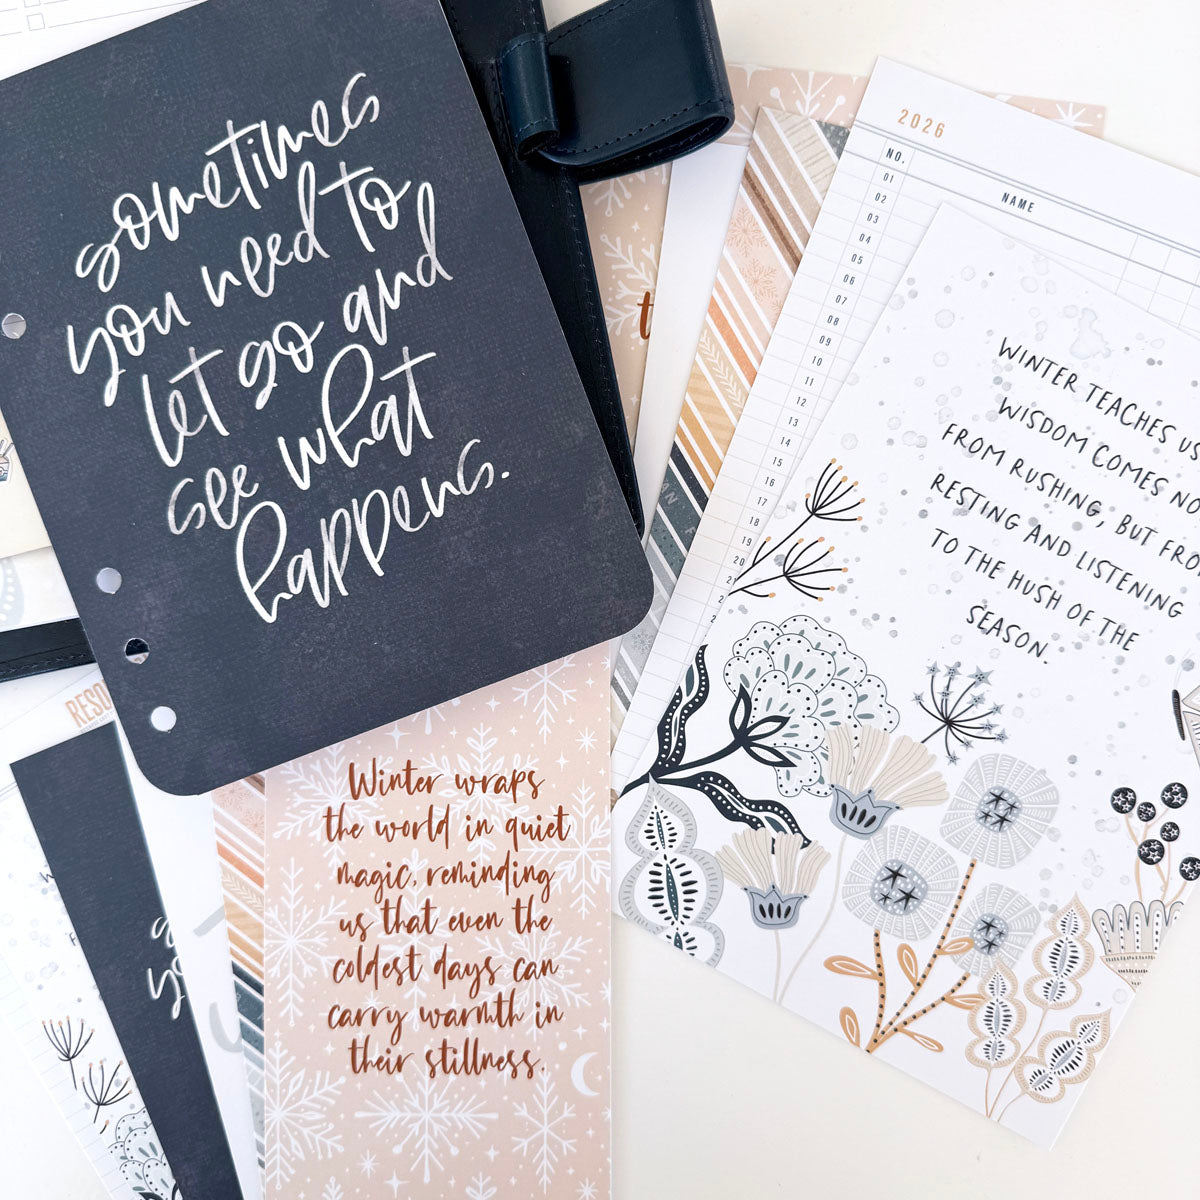 sometimes
you need to
let go and
see what
happens.
2026
NO.
NAME
01
02
03
04
05
06
07
08
09
10
11
12
13
14
15
16
17
18
19
20
WINTER TEACHES US
WISDOM COMES
FROM RUSHING, BUT
RESTING AND LISTENING
TO THE HUSH OF THE
SEASON.
Winter wraps
the world in quiet
magic, reminding
us that even the
coldest days can
carry warmth in
their stillness.